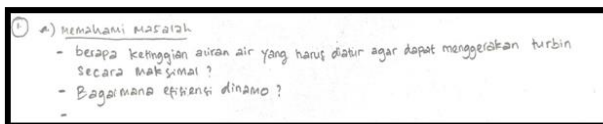 ① a) Memahami Masalah
- berapa ketinggian aliran air yang harus diatur agar dapat menggerakan turbin
secara maksimal ?
- Bagaimana efisiensi dinamo ?
-